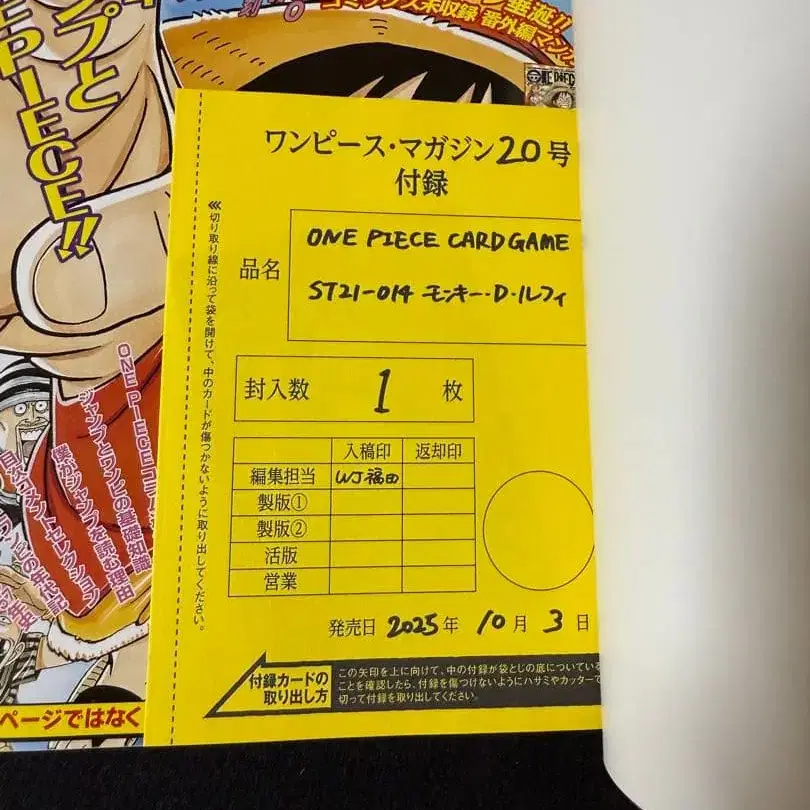 刻
垂涎!!
コミックス未収録 番外編マンガ
ONE PIECE
ンプと
EPIECE!!
ワンピース・マガジン20号
付録
≪切り取り線に沿って袋を開けて、中のカードが傷つかないように取り出してください。
品名
ONE PIECE CARD GAME
ST21-014 モンキー・D・ルフィ
封入数 1 枚
入稿印 返却印
編集担当 WJ福田
製版①
製版②
活版
営業
発売日 2025年 10月 3日
付録カードの
取り出し方
この矢印を上に向けて、中の付録が袋とじの底についている
ことを確認したら、付録を傷つけないようにハサミやカッターで
切って付録を取り出してください。
ONE PIECEコラム
ジャンプとワンピの基礎知識
僕がジャンプを読む理由
ページではなく